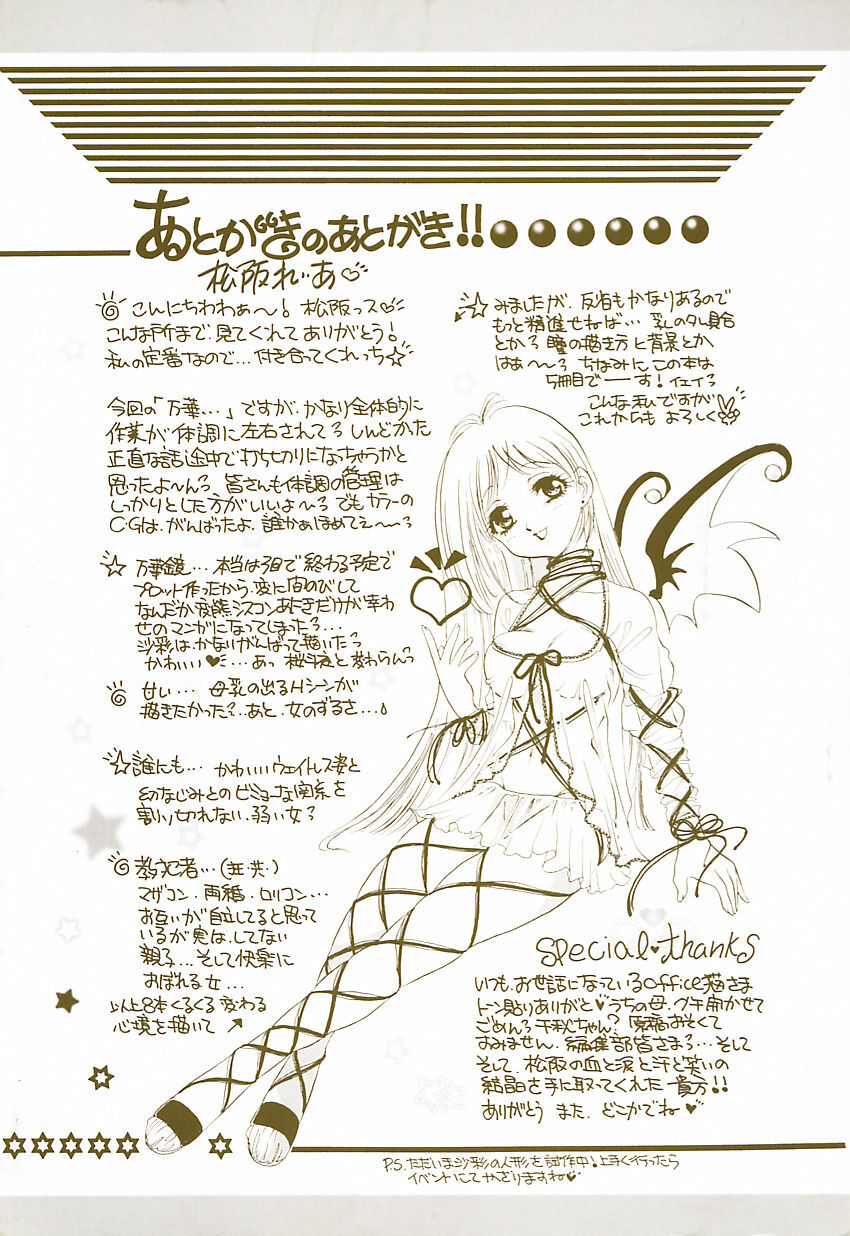 あとがきのあとがき!!
松阪れいあ♡
こんにちわわぁ〜! 松阪っス♡
こんな所まで、見てくれてありがとう!
私の定番なので…付き合ってくれっち☆
今回の「万華…」ですが、かなり全体的に
作業が体調に左右されてる しんどかた
正直な話途中で打ち切りになっちゃうかと
思ったよ〜ん 皆さんも体調の管理は
しっかりとした方がいいよ〜 でもカラーの
C・Gは、がんばったよ、誰かぁほめてぇ〜
☆ 万華鏡… 本当は3回で終わる予定で
プロット作ったから、変に間のびして
なんだか変態シスコンあにきだけが幸わ
せのマンガになってしまった…
沙彩は、かなりがんばって描いた
かわいい♥ … あっ 桜 と変わらんっ
甘い… 母乳の出るHシーンが
描きたかった? あと、女のずるさ…
☆誰にも… かわいいウェイトレス姿と
幼なじみとのビミョーな関係を
割り切れない、弱い女
教 者…
マザコン、再婚、ロリコン…
お互いが自立してると思って
いるが実は、してない
親子… そして快楽に
おぼれる女…
以上8本くるくる変わる
心境を描いて ↗
☆ みましたが、反省もかなりあるので
もっと精進せねば… 乳のタレ具合
とか 瞳の描き方と背景とか
はぁ〜 ちなみにこの本は
5冊目でーーす! イェイ
こんな私ですが
これからも よろしく
special♥thanks
いつも、お世話になっているoffice猫さま
トーン貼りありがと♥うちの母、グチ聞かせて
ごめん 千秋ちゃん? 原稿おそくて
すみません、編集部皆さま …そして
そして、松阪の血と涙と汗と笑いの
結晶を手に取ってくれた 貴方!!
ありがとう また、どこかでね♥
P.S.ただいま沙彩の人形を試作中! 上手く行ったら
イベントにてかざりますね♥